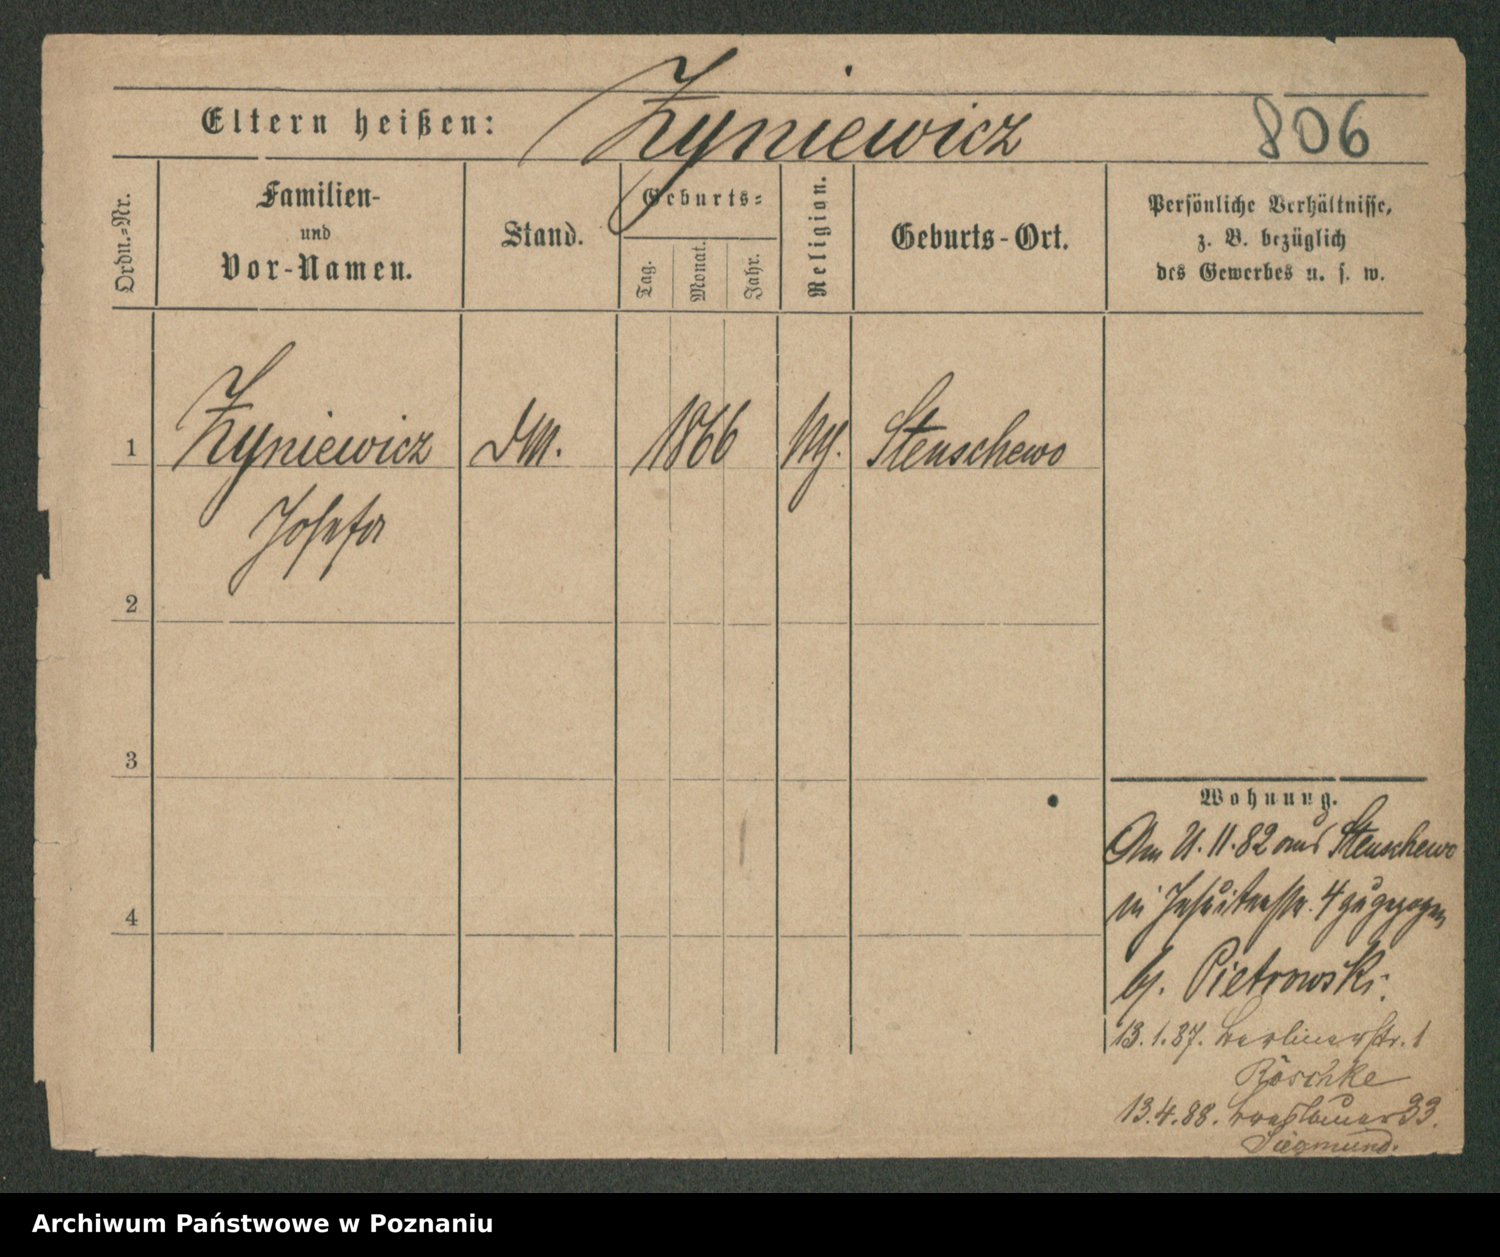 Eltern heißen: Żyniewicz 806
Ordn.-Nr.
Familien- und Vor-Namen.
Stand.
Geburts-
Tag.
Monat.
Jahr.
Religion.
Geburts-Ort.
Persönliche Verhältnisse,
z. B. bezüglich
des Gewerbes u. s. w.
1 Żyniewicz 1866 Stenschewo
Josefa
2
3
4
Wohnung.
Am 21.11.82 aus Stenschewo
in Jesuitenstr. 4 zugezogen
b. Pietrowski.
13.1.87. Berlinerstr. 1
Röschke
13.4.88. Breslauer 33.
Siegmund.
Archiwum Państwowe w Poznaniu